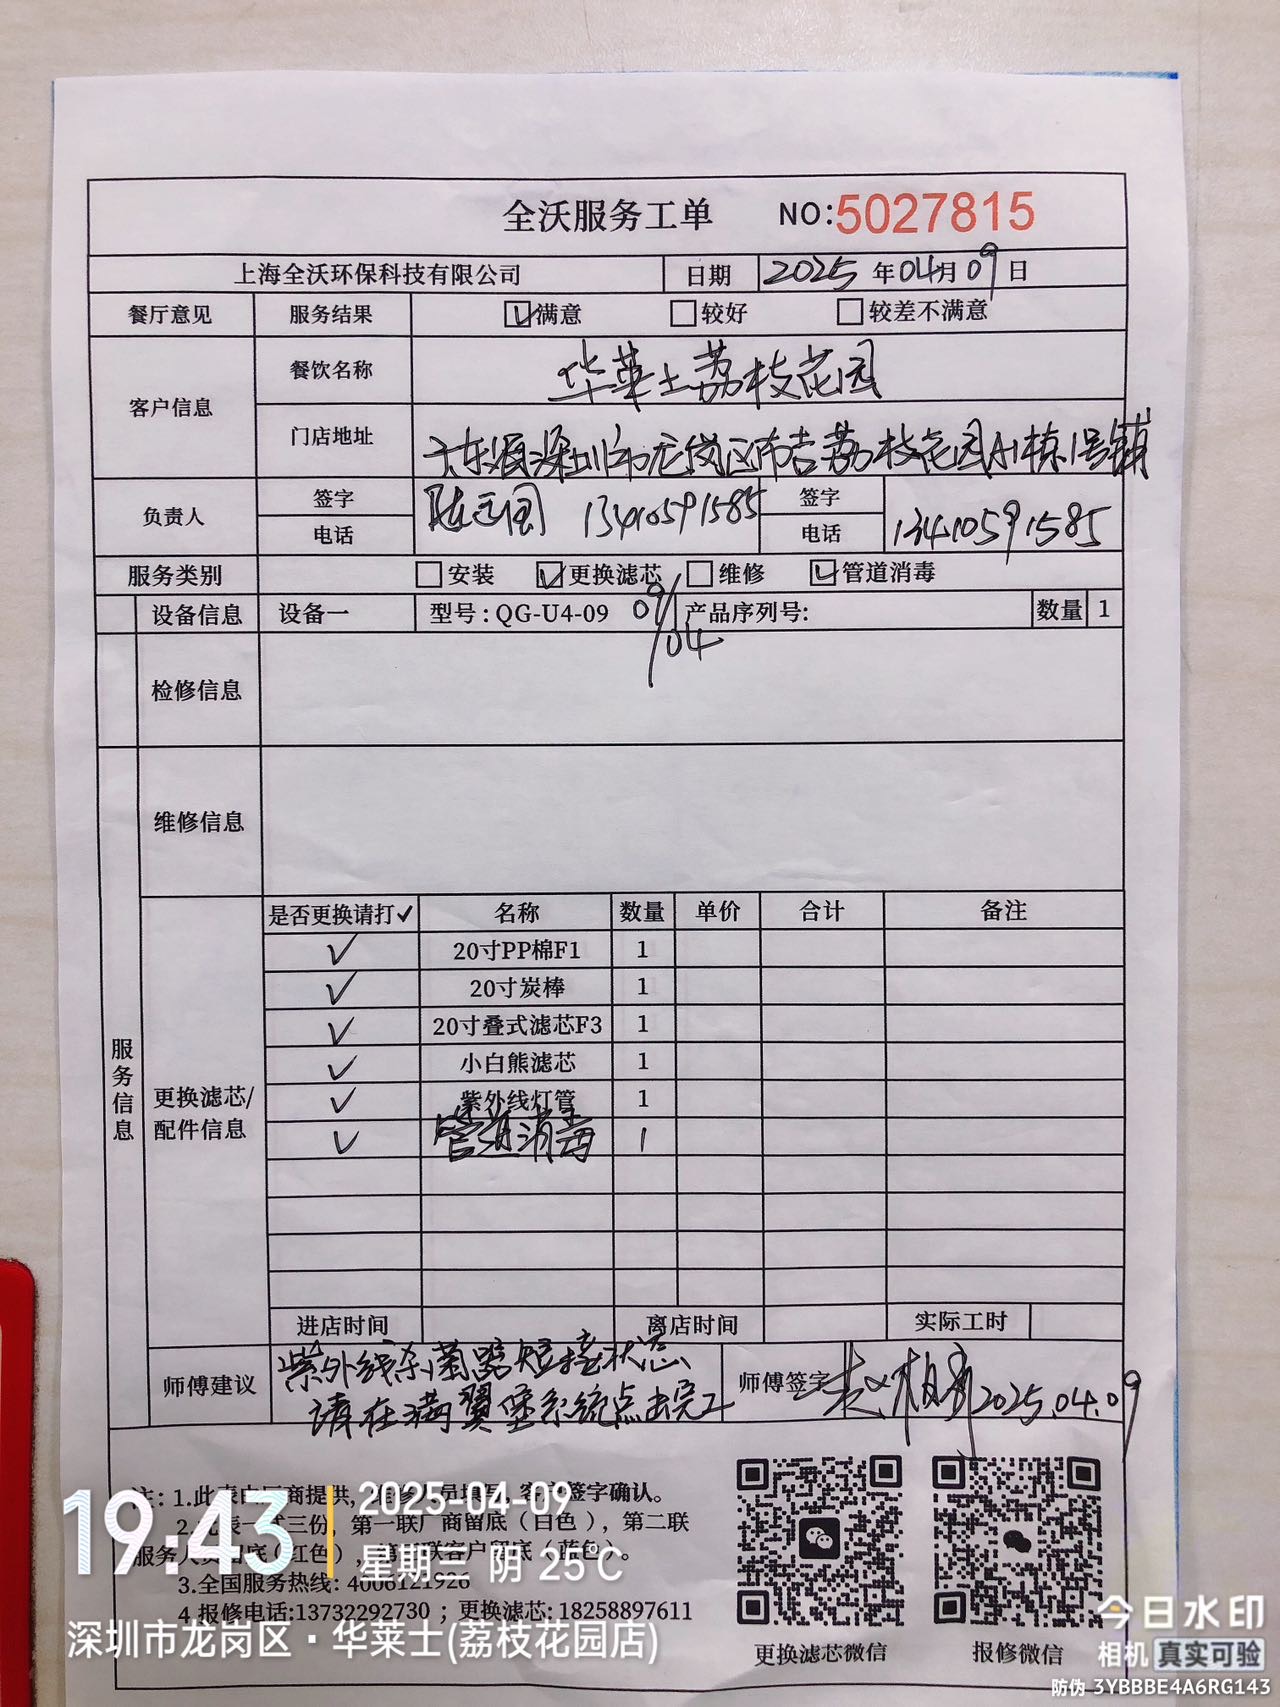 全沃服务工单 NO:5027815
上海全沃环保科技有限公司 日期 2025年04月09日
餐厅意见 服务结果 满意 较好 较差不满意
客户信息 餐饮名称 华莱士荔枝花园
门店地址 广东省深圳市龙岗区布吉荔枝花园A1栋1号铺
负责人 签字 13410591585 签字
电话 电话 13410591585
服务类别 安装 更换滤芯 维修 管道消毒
设备信息 设备一 型号:QG-U4-09 09/04 产品序列号: 数量 1
检修信息
维修信息
服务信息
更换滤芯/
配件信息
是否更换请打✓ 名称 数量 单价 合计 备注
✓ 20寸PP棉F1 1
✓ 20寸炭棒 1
✓ 20寸叠式滤芯F3 1
✓ 小白熊滤芯 1
✓ 紫外线灯管 1
✓ 管道消毒 1
进店时间 离店时间 实际工时
师傅建议 紫外线杀菌器短接状态
请在满翼堡系统点击完工
师傅签字 2025.04.09
注: 1.此表由厂商提供, 客户签字确认。
2.此表一式三份, 第一联厂商留底(白色), 第二联
服务人员留底(红色), 第三联客户留底(蓝色)。
3.全国服务热线: 4006121926
4 报修电话:13732292730 ; 更换滤芯: 18258897611
更换滤芯微信 报修微信
19:43
2025-04-09
星期三 阴 25℃
深圳市龙岗区·华莱士(荔枝花园店)
今日水印
相机 真实可验
防伪 3YBBBE4A6RG143